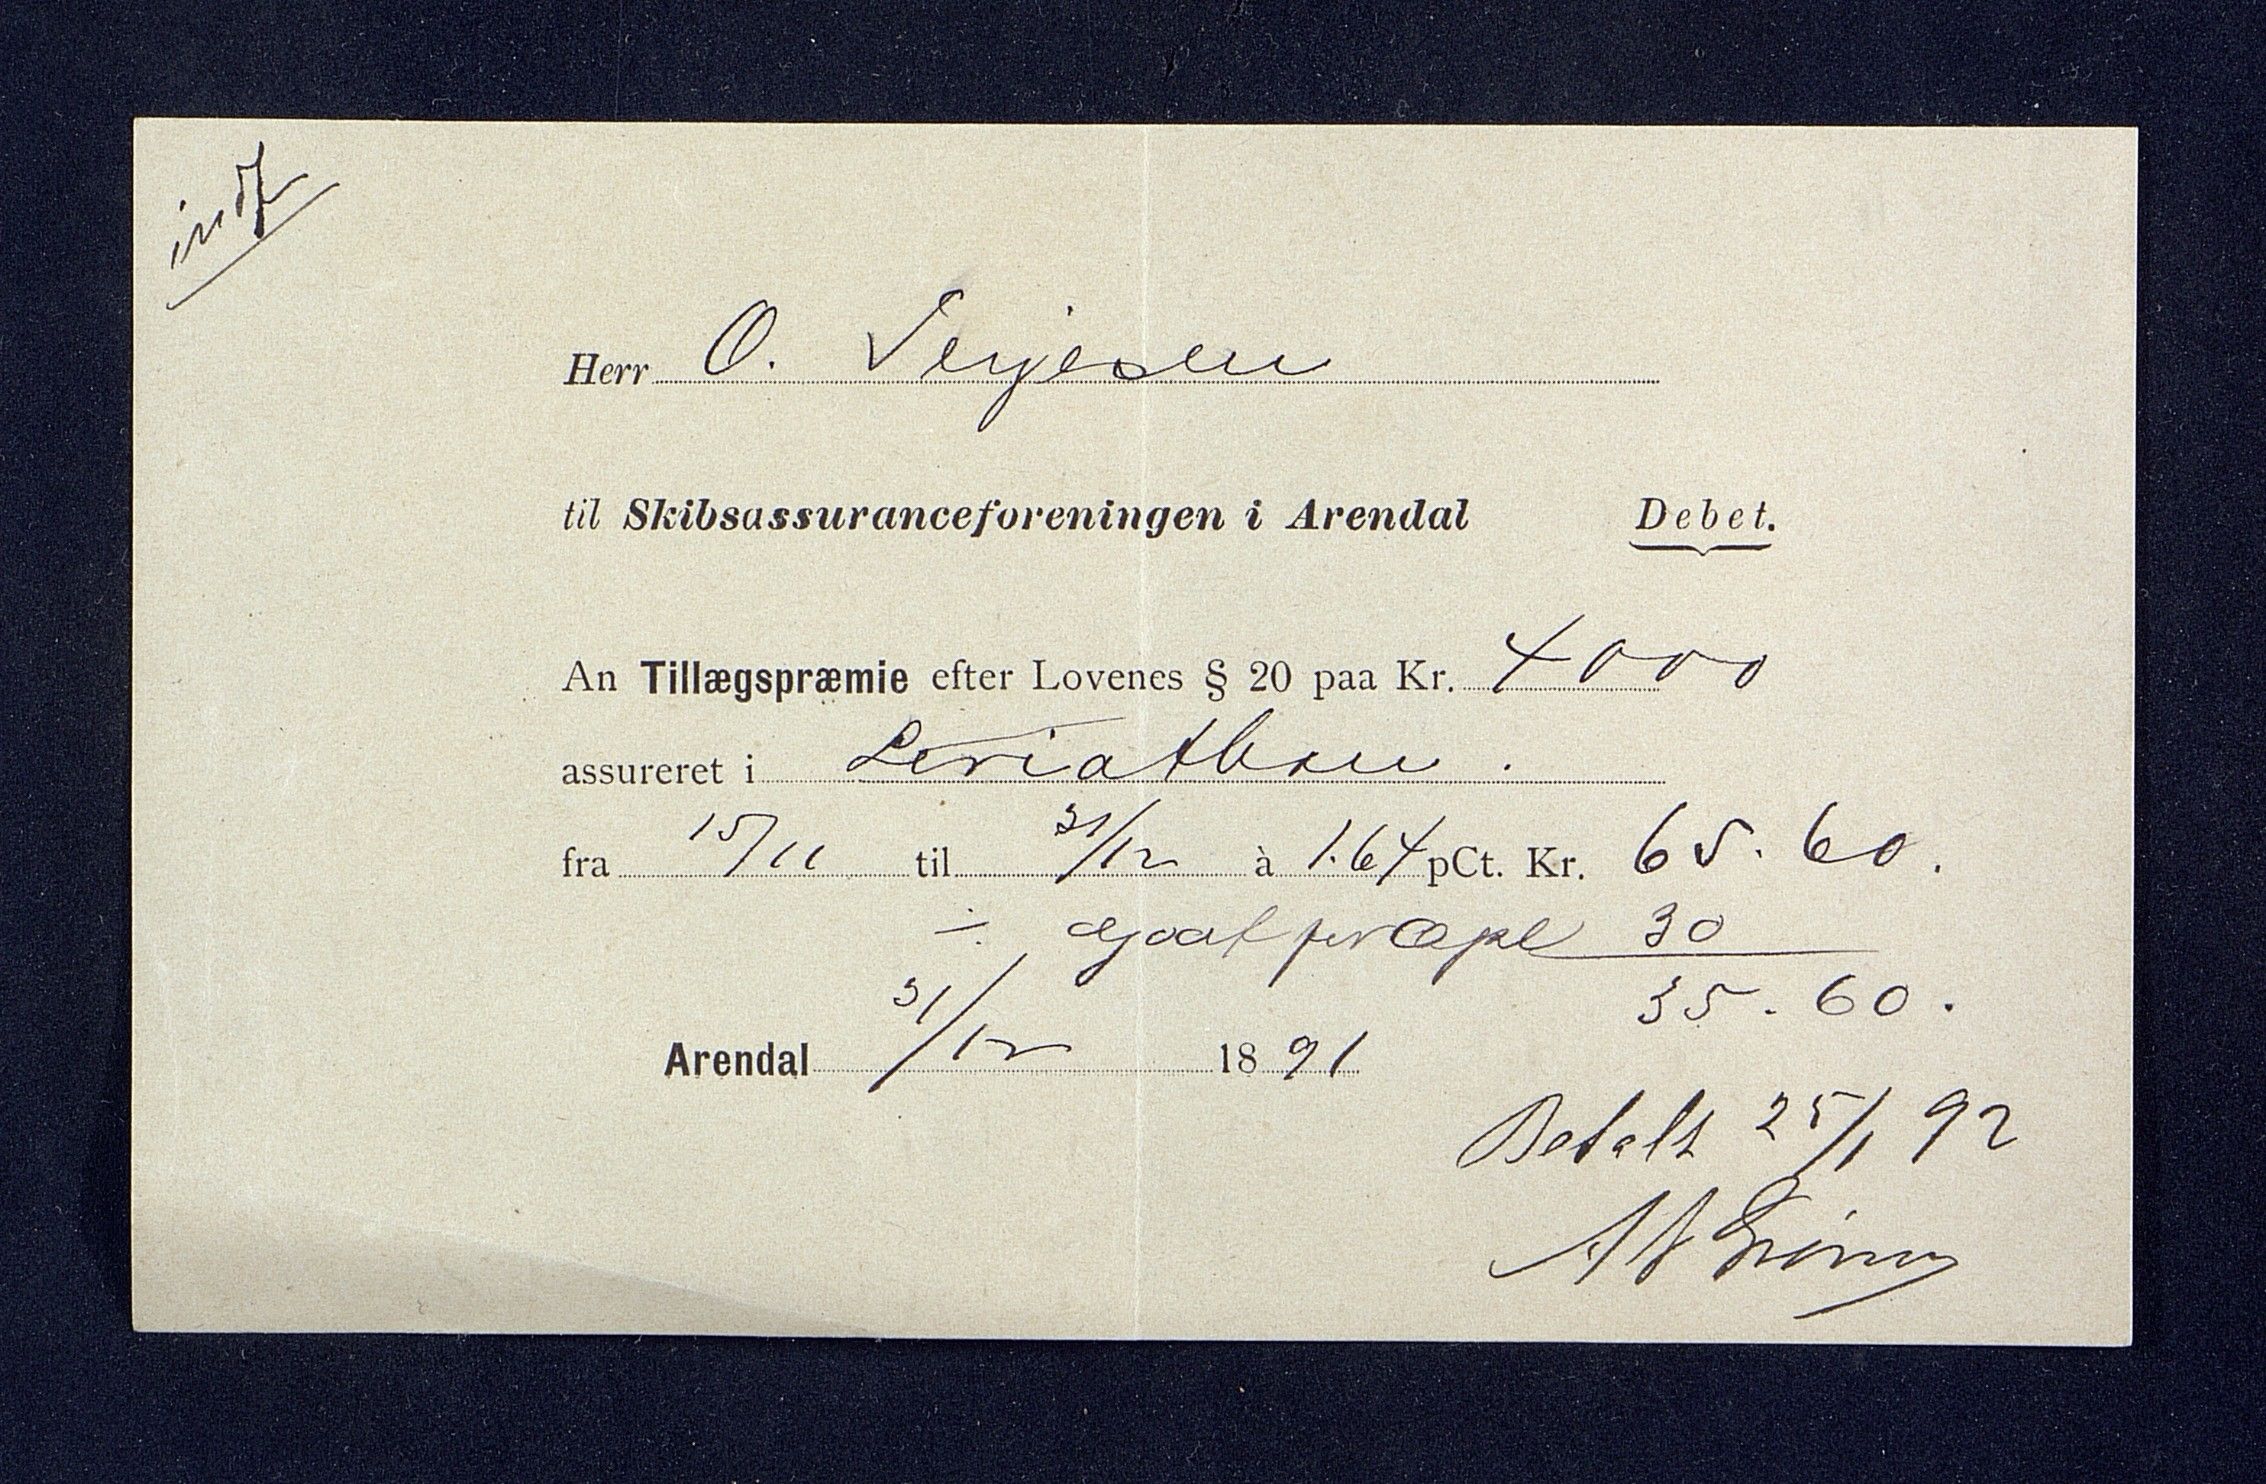 Herr O. Terjesen
til Skibsassuranceforeningen i Arendal Debet.
An Tillægspræmie efter Lovenes § 20 paa Kr. 4000
assureret i Leviathan.
fra 15/11 til 31/12 à 1.64 pCt. Kr. 65.60.
÷ 30
35.60.
Arendal 31/12 1891
Betalt 25/1 92